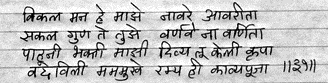 विकल मन हे माझे नावरे आवरीता
सकल गुण ते तुझे वर्णवे ना वर्णिता
पाहूनी भक्ती माझी दिव्य तू केली कृपा
वदविली मममुखे रम्य ही काव्यपूजा ॥३१॥